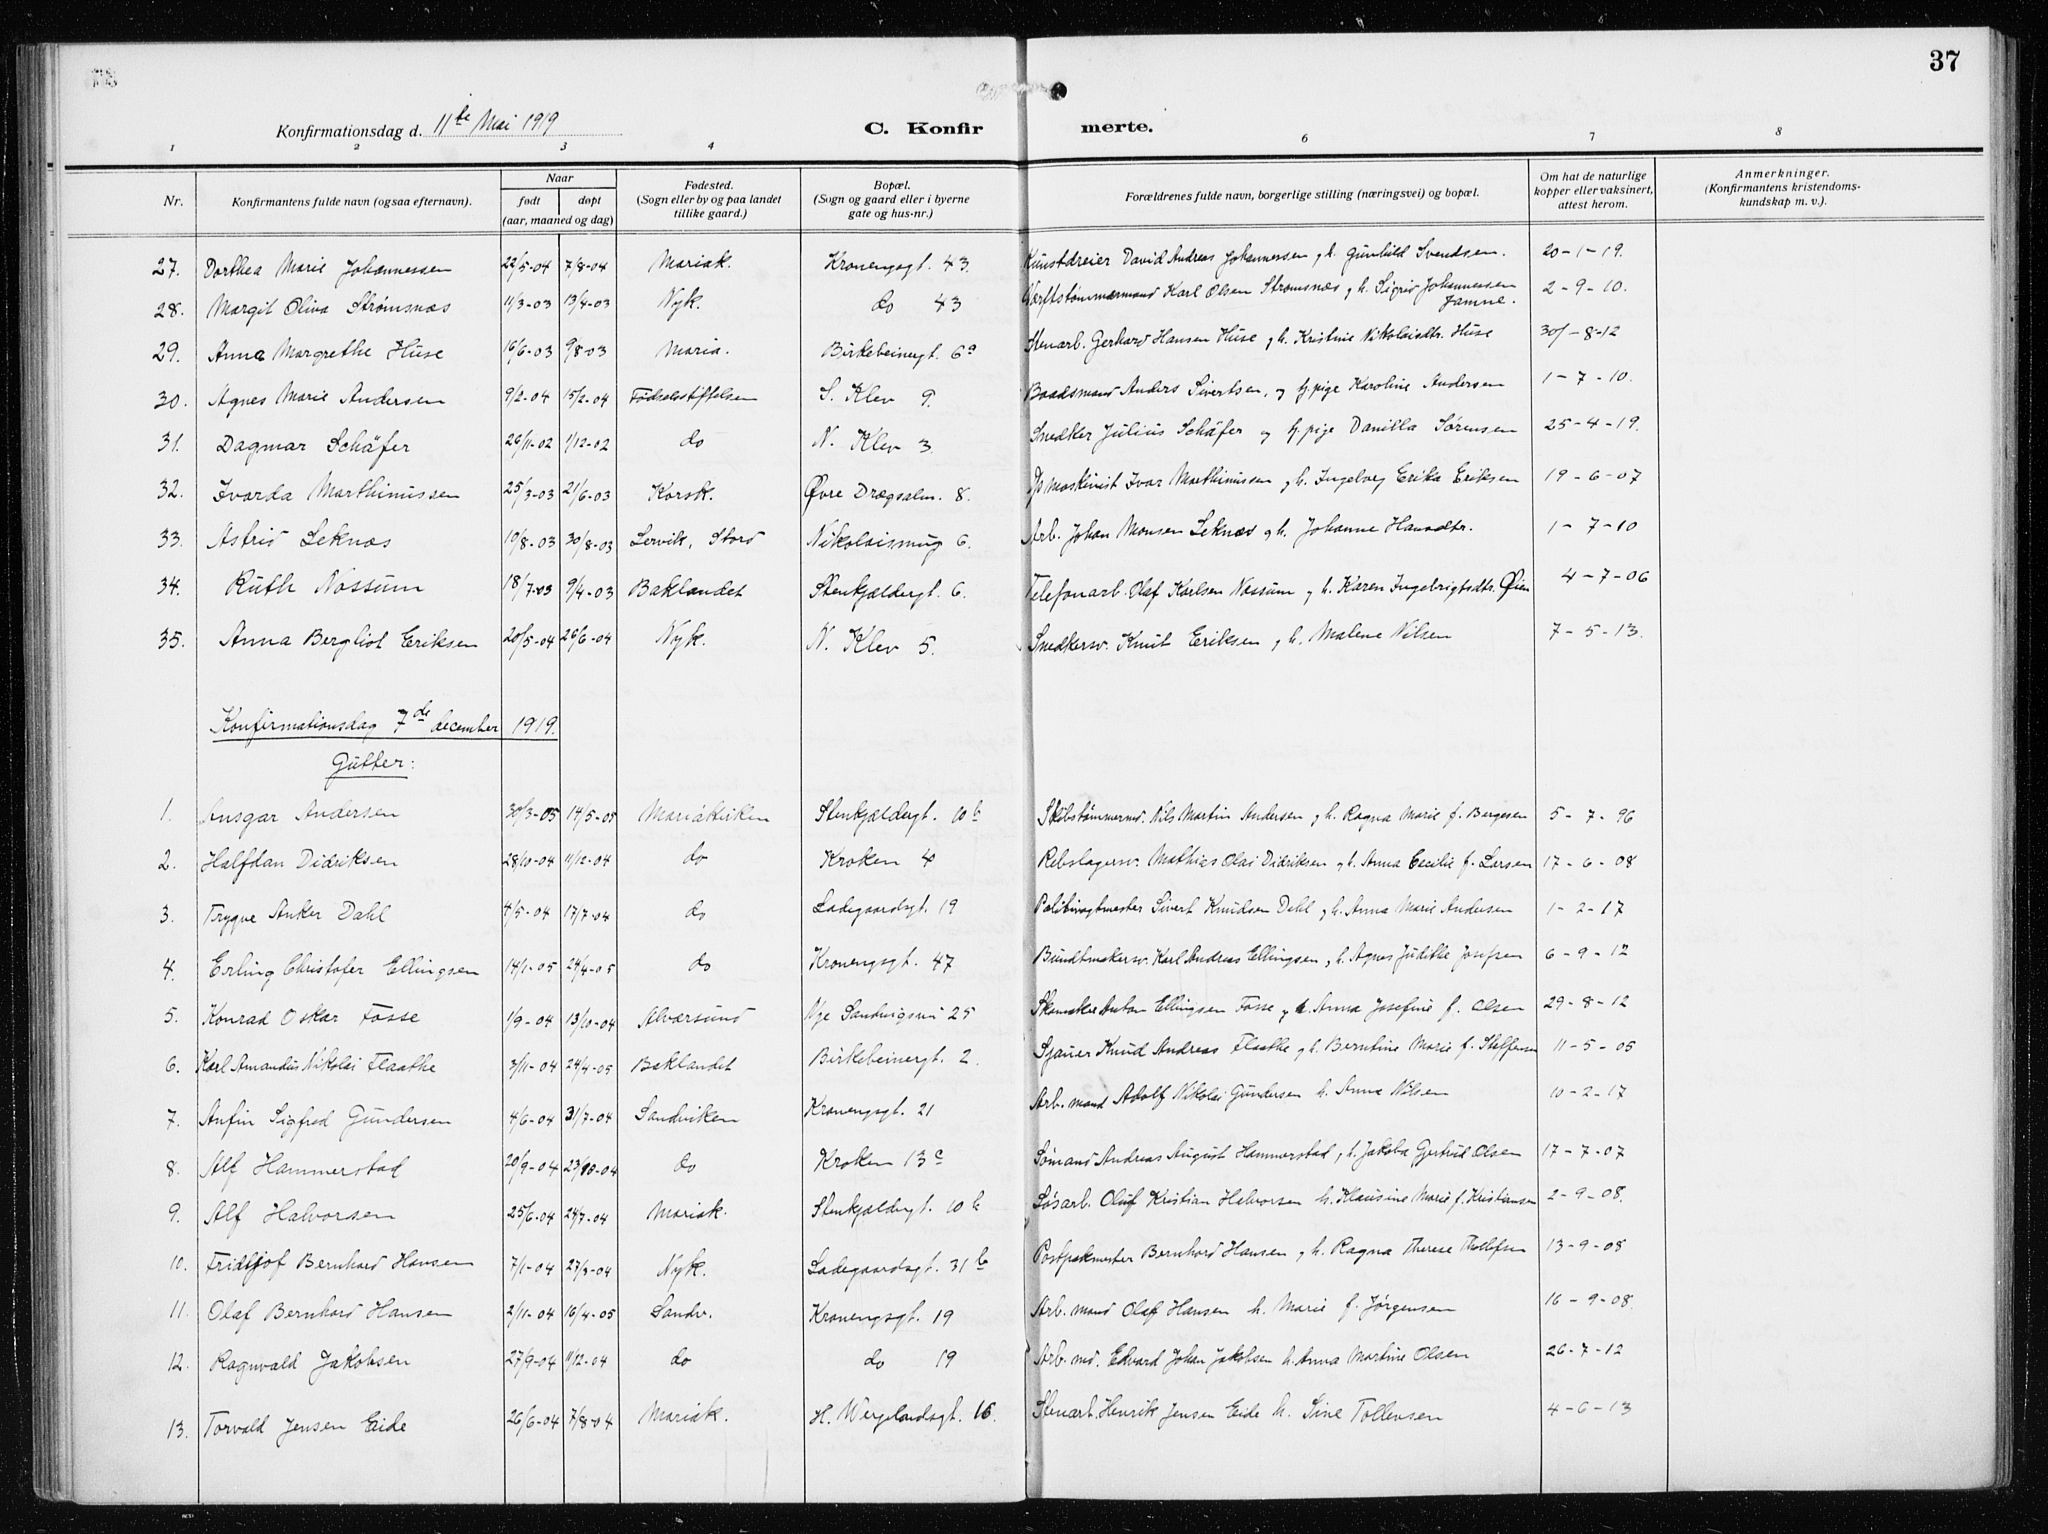 37
Konfirmationsdag d. 11te Mai 1919
C. Konfirmerte.
1 2 3 4 6 7 8
Nr. Konfirmantens fulde navn (ogsaa efternavn). Naar født døpt (aar, maaned og dag) Fødested. (Sogn eller by og paa landet tillike gaard.) Bopæl. (Sogn og gaard eller i byerne gate og hus-nr.) Forældrenes fulde navn, borgerlige stilling (næringsvei) og bopæl. Om hat de naturlige kopper eller vaksinert, attest herom. Anmerkninger. (Konfirmantens kristendomskundskap m. v.).
27. Dorthea Marie Johannessen 22/5-04 7/8-04 Mariak. Kronengsgt. 43 Kunstdreier David Andreas Johannessen og h. Gunhild Svendsen. 20-1-19.
28. Margit Oliva Strømsnæs 11/3-03 13/4-03 Nyk. do 43 Værftstømmermand Karl Olsen Strømsnæs og h. Sigrid Johannessen Jamne. 2-9-10.
29. Anna Margrethe Huse 16/6-03 9/8-03 Maria. Birkebeinergt. 6a Stenarb. Gerhard Hansen Huse og h. Kristine Nikolaisdtr. Huse 30/-8-12
30. Agnes Marie Andersen 9/2-04 15/2-04 Fødselsstiftelsen S. Klev 9. Baadsmand Anders Sivertsen, og tj.pige Karoline Andersen 1-7-10.
31. Dagmar Schäfer 26/11-02 1/12-02 do N. Klev 3 Snedker Julius Schäfer og tj.pige Danilla Sørensen 25-4-19.
32. Ivarda Marthinussen 25/3-03 21/6-03 Korsk. Øvre Drægsalm. 8. maskinist Ivar Marthinussen og h. Ingeborg Erika Eriksen 19-6-07
33. Astrid Leknæs 10/8-03 30/8-03 Lervik, Stord Nikolaismug 6. Arb. Johan Monsen Leknæs og h. Johanne Hansdtr. 1-7-10
34. Ruth Nossum 18/7-03 9/4-03 Baklandet Stenkjældergt. 6. Telefonarb. Olaf Karlsen Nossum og h. Karen Ingebrigtsdtr. Øien 4-7-06
35. Anna Bergliot Eriksen 20/5-04 26/6-04 Nyk. N. Klev 5. Snedkersv. Knut Eriksen og h. Malene Nilsen 7-5-13.
Konfirmationsdag 7de december 1919.
Gutter:
1. Ansgar Andersen 30/3-05 14/5-05 Mariakirken Stenkjældergt. 10b Skibstømmermd. Nils Martin Andersen og h. Ragna Marie f. Bergesen 5-7-96
2. Halfdan Didriksen 28/10-04 11/12-04 do Kroken 4 Rebslagersv. Mathias Olai Didriksen og h. Anna Cecilie f. Larsen 17-6-08
3. Trygve Anker Dahl 4/5-04 17/7-04 do Ladegaardsgt. 19 Politivagtmester Sivert Knudsen Dahl og h. Anna Marie Andersen 1-2-17
4. Erling Christofer Ellingsen 14/1-05 24/4-05 do Kronengsgt. 47 Bundtmakersv. Karl Andreas Ellingsen og h. Agnes Judithe Josefsen 6-9-12
5. Konrad Oskar Fosse 1/9-04 13/10-04 Alversund Nye Sandvigsvei 25 Skomaker Anton Ellingsen Fosse og h. Anna Josefine f. Olsen 29-8-12
6. Karl Amandus Nikolai Flaathe 3/11-04 24/4-05 Baklandet Birkebeinergt. 2. Sjauer Knud Andreas Flaathe og h. Berntine Marie f. Steffensen 11-5-05
7. Anfin Sigfred Gundersen 4/6-04 31/7-04 Sandviken Kronengsgt. 21 Arb.mand Adolf Nikolai Gundersen h. Anna Nilsen 10-2-17
8. Alf Hammerstad 20/9-04 23/10-04 do Kroken 13c Sømand Andreas August Hammerstad, h. Jakoba Gertrud Olsen 17-7-07
9. Alf Halvorsen 25/6-04 24/7-04 Mariak. Stenkjældergt. 10b Løsarb. Oluf Kristian Halvorsen h. Klausine Marie f. Kristiansen 2-9-08.
10. Fridtjof Bernhard Hansen 7/1-04 27/3-04 Nyk. Ladegaardsgt. 31b Postpakmester Bernhard Hansen og h. Ragna Therese Thollfsen 13-9-08
11. Olaf Bernhard Hansen 2/11-04 16/4-05 Sandv. Kronengsgt. 19 Arb.mand Olaf Hansen h. Marie f. Jørgensen 16-9-08.
12. Ragnvald Jakobsen 27/9-04 11/12-04 do do 19 Arb.md. Edvard Johan Jakobsen h. Anna Martine Olsen 26-7-12
13. Torvald Jensen Eide 26/6-04 7/8-04 Mariak. H. Wergelandsgt. 16. Stenarb. Henrik Jensen Eide h. Sine Tollevsen 4-6-13